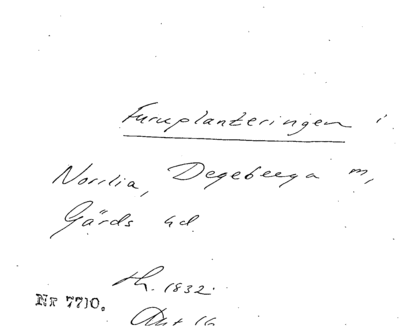 Furuplanteringen i
Norrlia, Degeberga m,
Gärds hd.
th. 1832.
Nr 7710.